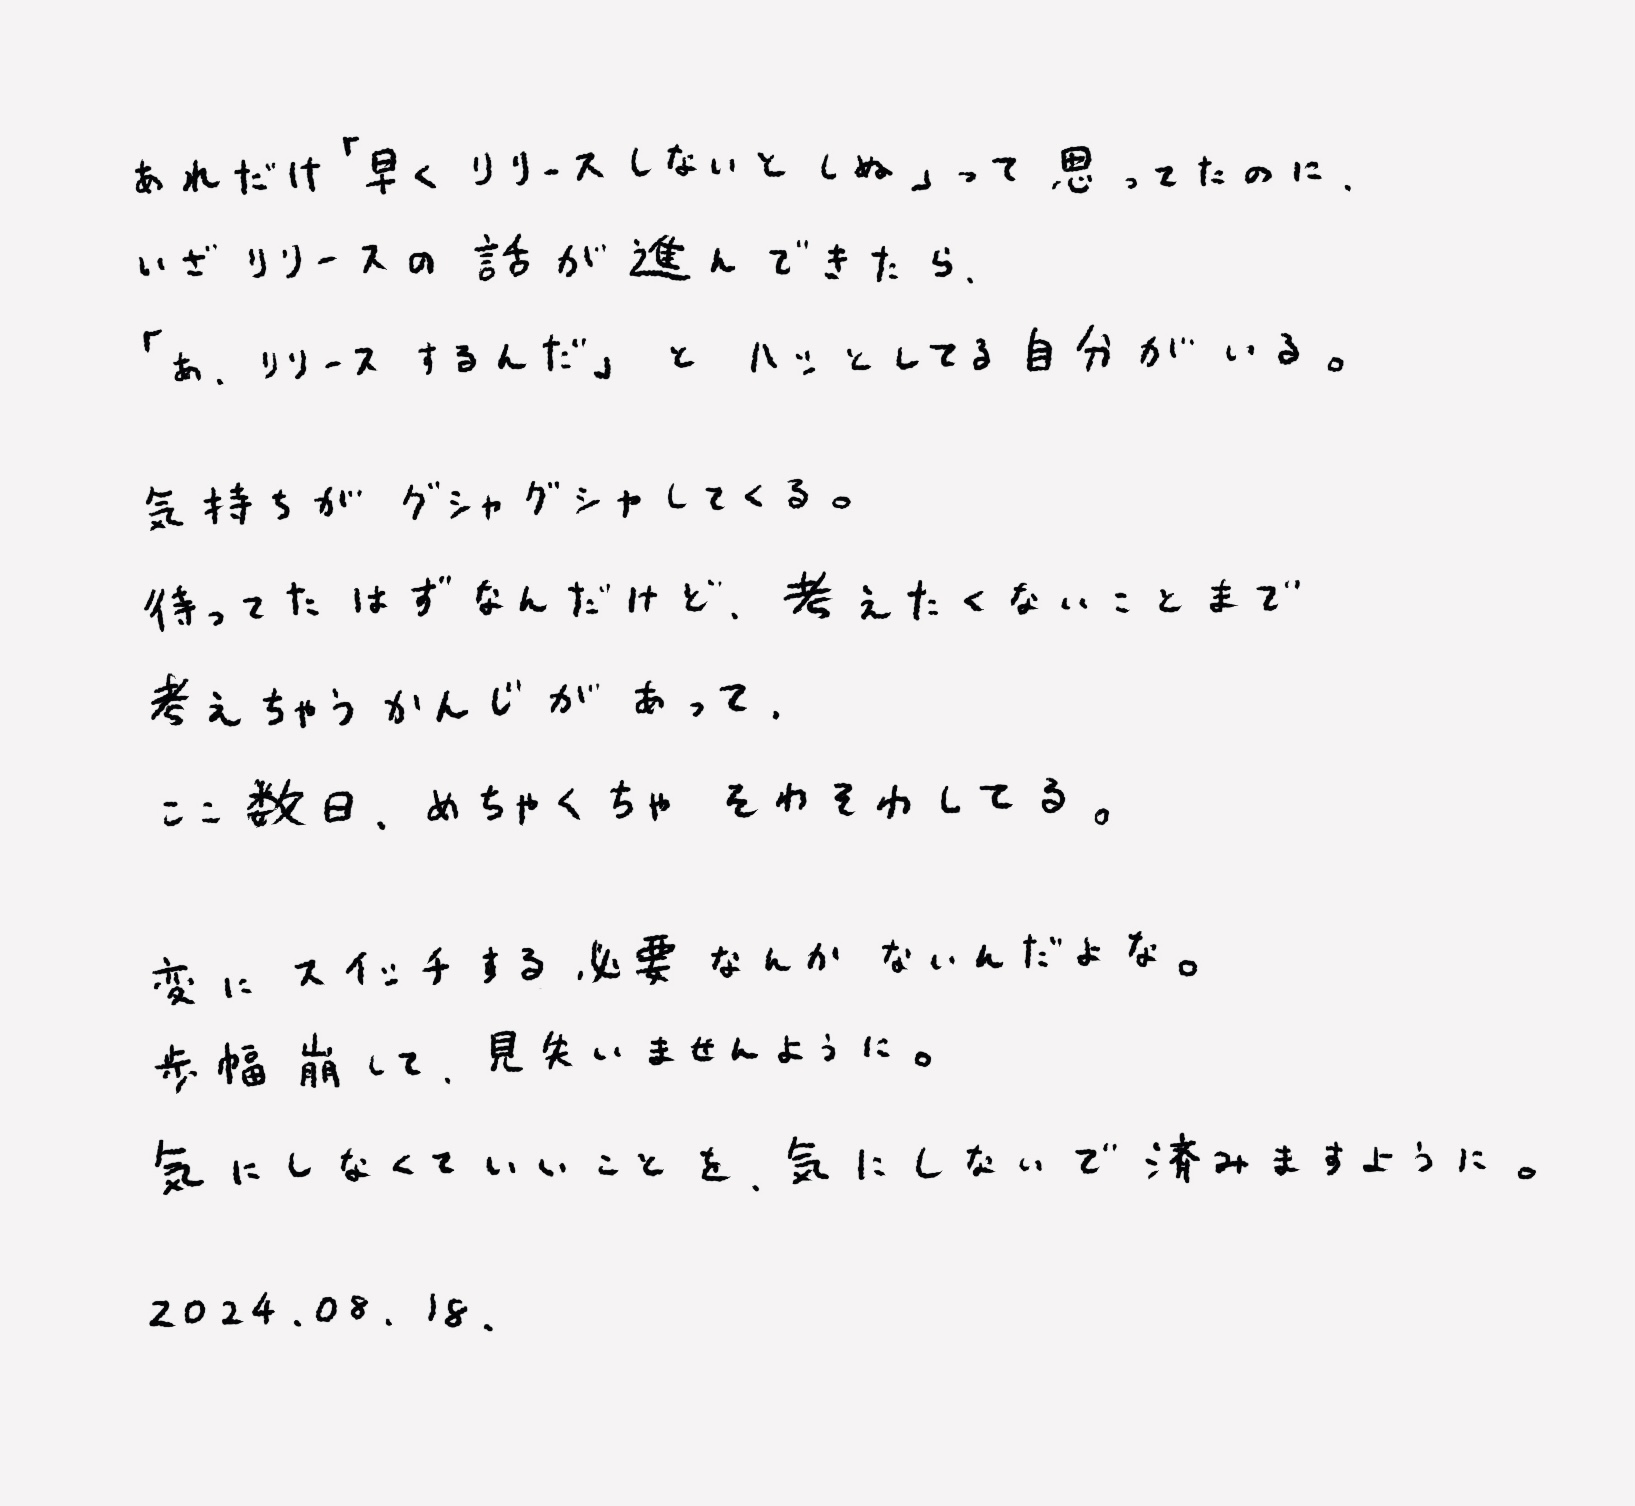 あれだけ「早くリリースしないとしぬ」って思ってたのに、
いざリリースの話が進んできたら、
「あ、リリースするんだ」とハッとしてる自分がいる。
気持ちがグシャグシャしてくる。
待ってたはずなんだけど、考えたくないことまで
考えちゃうかんじがあって、
ここ数日、めちゃくちゃそわそわしてる。
変にスイッチする必要なんかないんだよな。
歩幅崩して、見失いませんように。
気にしなくていいことを、気にしないで済みますように。
2024.08.18.